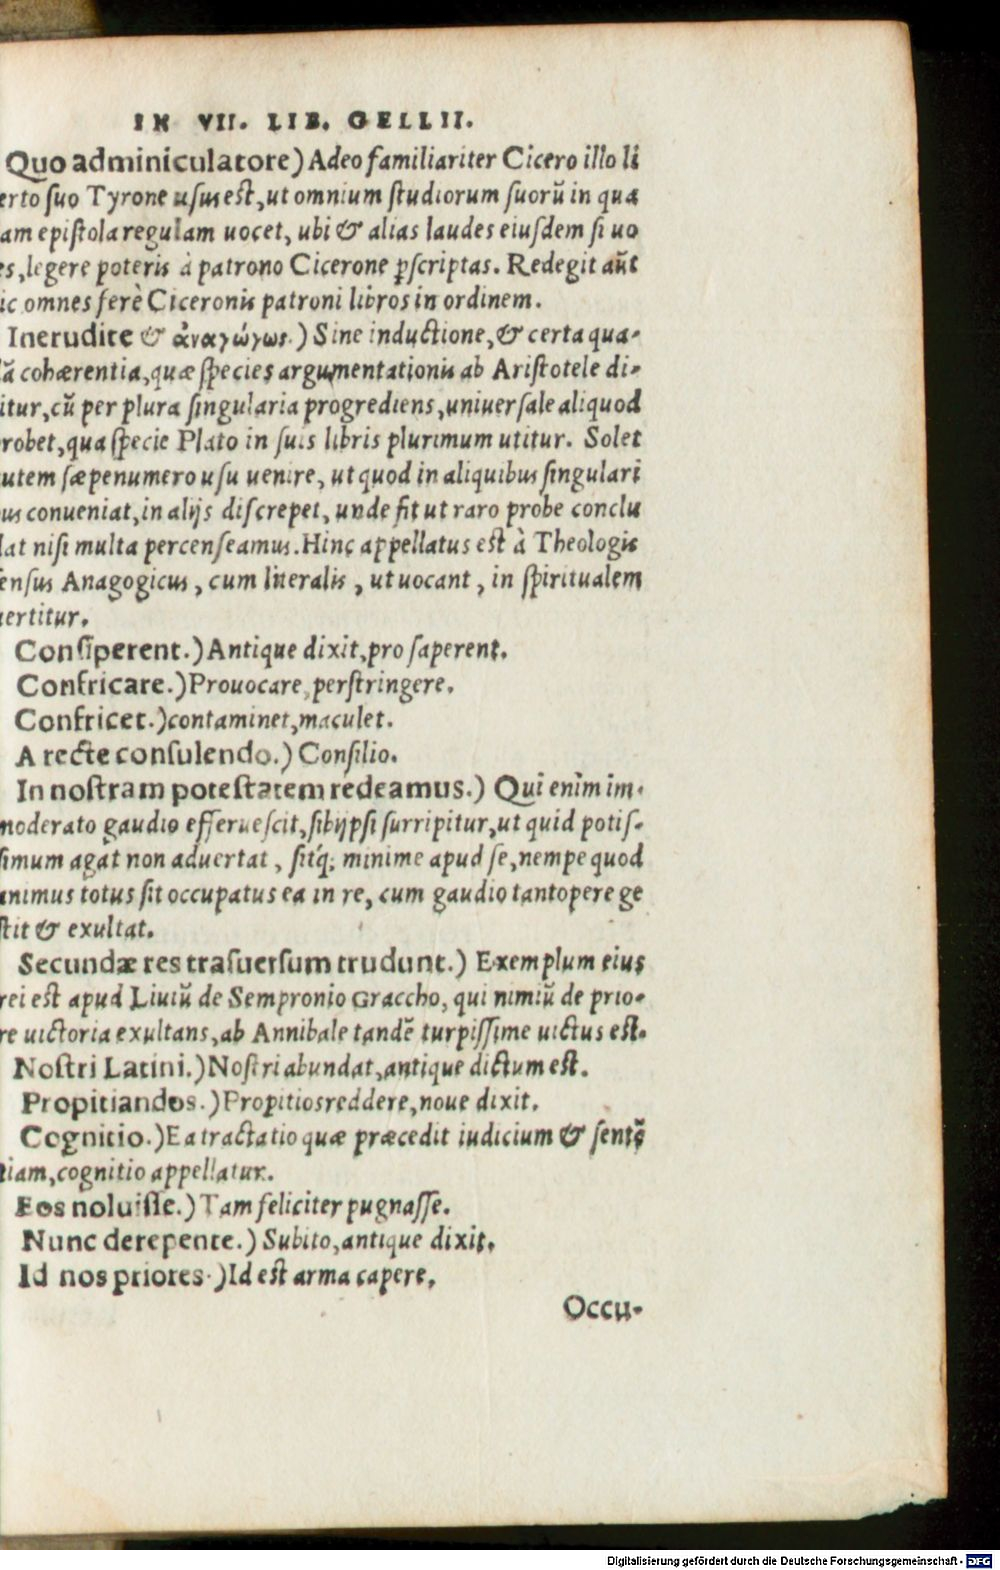 IN VII. LIB. GELLII.
Quo adminiculatore) Adeo familiariter Cicero illo li
erto suo Tyrone usus est, ut omnium studiorum suorũ in qua
am epistola regulam uocet, ubi & alias laudes eiusdem si uo
es, legere poteris à patrono Cicerone ꝑscriptas. Redegit aũt
ic omnes ferè Ciceronis patroni libros in ordinem.
Inerudite & ἀναγώγως.) Sine inductione, & certa qua-
ã cohærentia, quæ species argumentationis ab Aristotele di-
itur, cũ per plura singularia progrediens, uniuersale aliquod
robet, qua specie Plato in suis libris plurimum utitur. Solet
utem sæpenumero usu uenire, ut quod in aliquibus singulari
us conueniat, in alijs discrepet, unde fit ut raro probe conclu
dat nisi multa percenseamus. Hinc appellatus est à Theologis
ensus Anagogicus, cum literalis, ut uocant, in spiritualem
uertitur.
Consiperent.) Antique dixit, pro saperent.
Confricare.) Prouocare, perstringere.
Confricet.) contaminet, maculet.
A recte consulendo.) Consilio.
In nostram potestatem redeamus.) Qui enim im-
moderato gaudio efferuescit, sibijpsi surripitur, ut quid potis-
simum agat non aduertat, sitq; minime apud se, nempe quod
animus totus sit occupatus ea in re, cum gaudio tantopere ge
stit & exultat.
Secundæ res trasuersum trudunt.) Exemplum eius
rei est apud Liuiũ de Sempronio Graccho, qui nimiũ de prio-
re uictoria exultans, ab Annibale tandẽ turpissime uictus est.
Nostri Latini.) Nostri abundat, antique dictum est.
Propitiandos.) Propitios reddere, noue dixit.
Cognitio.) Ea tractatio quæ præcedit iudicium & sentẽ
tiam, cognitio appellatur.
Eos noluisse.) Tam feliciter pugnasse.
Nunc derepente.) Subito, antique dixit.
Id nos priores.) Id est arma capere,
Occu-
Digitalisierung gefördert durch die Deutsche Forschungsgemeinschaft - DFG